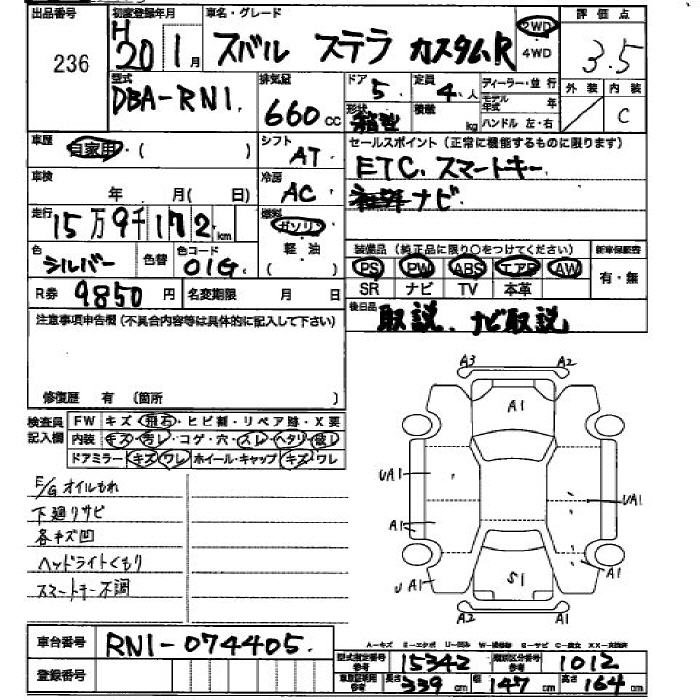 出品番号 初度登録年月 車名・グレード 評価点
236 H20 1月 スバル ステラ カスタムR 2WD 4WD 3.5
型式 排気量 ドア 定員 ディーラー・並行 外装 内装
DBA-RN1. 660cc 5 4人 モデル年式 年 C
形状 箱型 積載 kg ハンドル 左・右
車歴 自家用・( ) シフト AT セールスポイント(正常に機能するものに限ります)
ETC. スマートキー
車検 年 月(日) 冷房 AC ナビ
走行 15万9千172km 燃料 ガソリン 軽油 ( )
装備品(純正品に限り○をつけてください) 新車保証書
色 シルバー 色替 色コード 01G. PS PW ABS エアB AW 有・無
SR ナビ TV 本革
R券 9850円 名変期限 月 日 後日品 取説. ナビ取説
注意事項申告欄(不具合内容等は具体的に記入して下さい)
修復歴 有 (箇所 )
検査員記入欄 FW キズ・飛石・ヒビ割・リペア跡・X要
内装 キズ・汚レ・コゲ・穴・スレ・ヘタリ・破レ
ドアミラー キズ・ワレ ホイール・キャップ キズ・ワレ
A3 A2
A1
UA1 UA1
A1 A1
U A1 S1
A2 A1
E/G オイルもれ
下廻りサビ
各キズ凹
ヘッドライトくもり
スマートキー不調
車台番号 RN1-074405.
型式指定番号 参考 15342 類別区分番号 参考 1012
登録番号 車検証記載 参考 長さ 339cm 幅 147cm 高さ 164cm